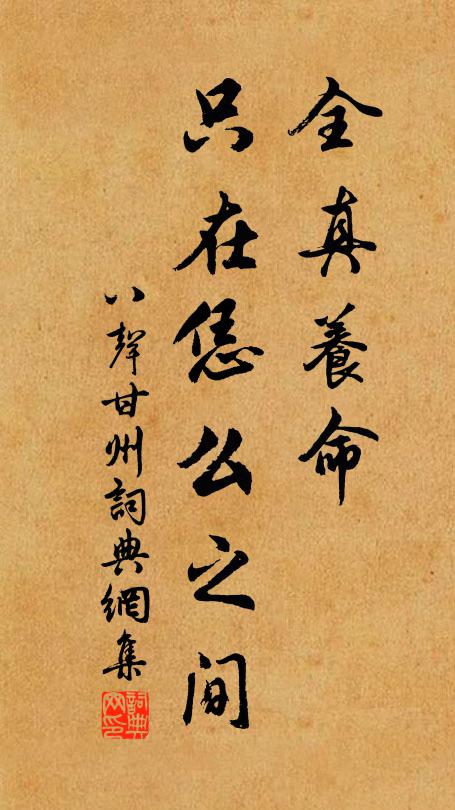 全真養命
只在恁么之间
八聲甘州詞典網集
詞典
网印